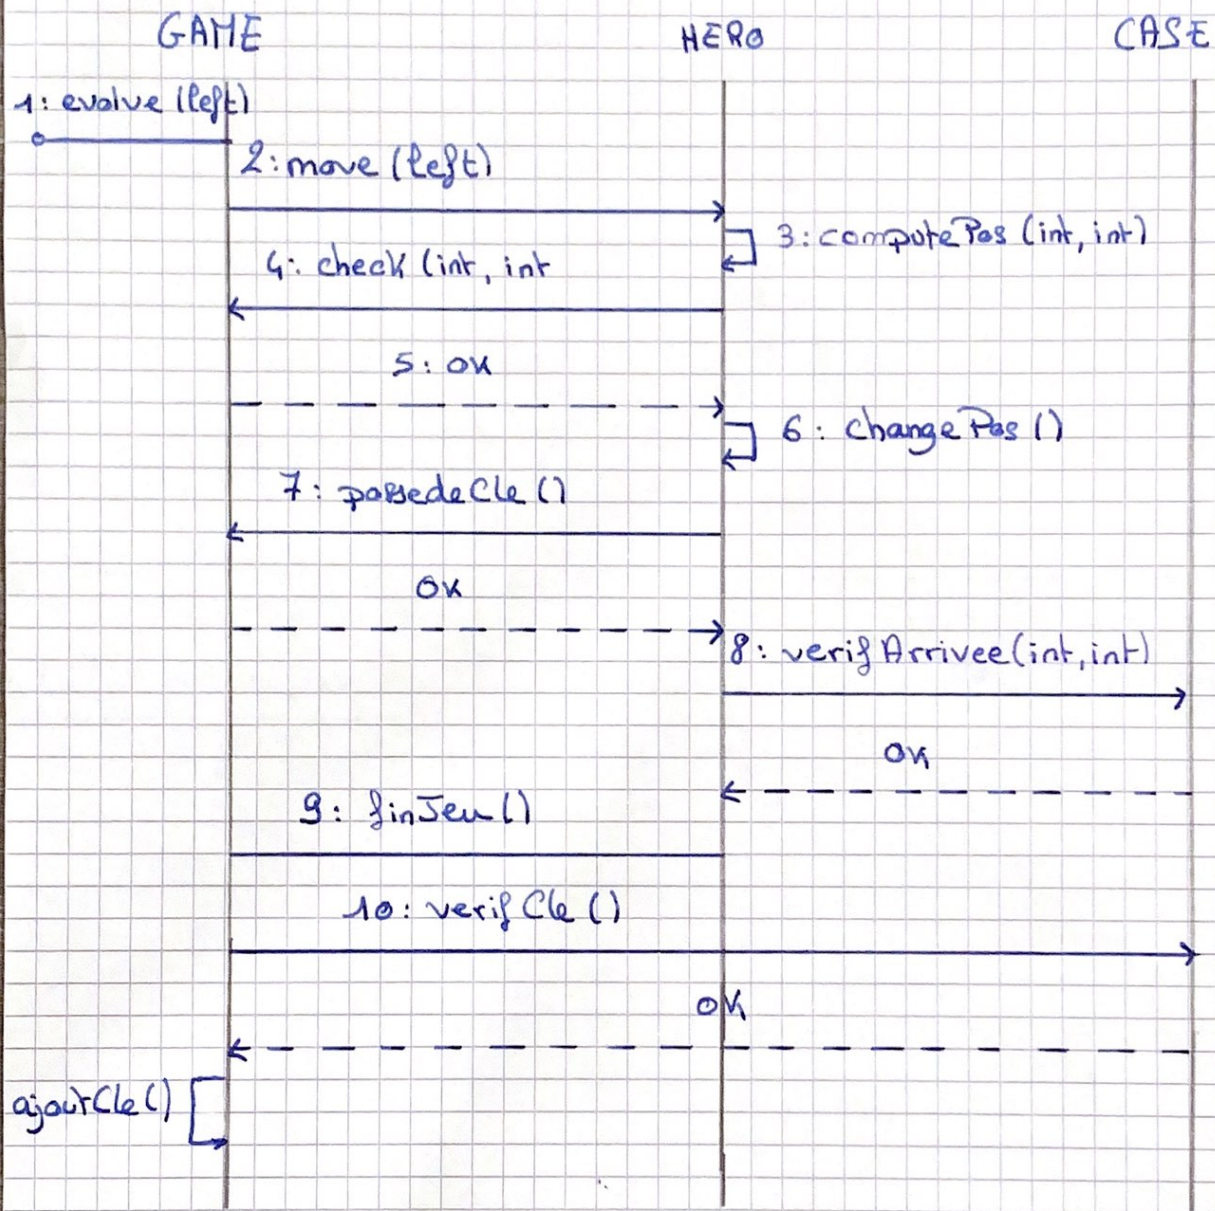 GAME HERO CASE
1: evolve (left)
2: move (left)
3: computePos (int, int)
4: check (int, int
5: OK
6: changePos ()
7: possedeCle ()
OK
8: verifArrivee (int, int)
OK
9: finJeu ()
10: verifCle ()
OK
ajoutCle ()